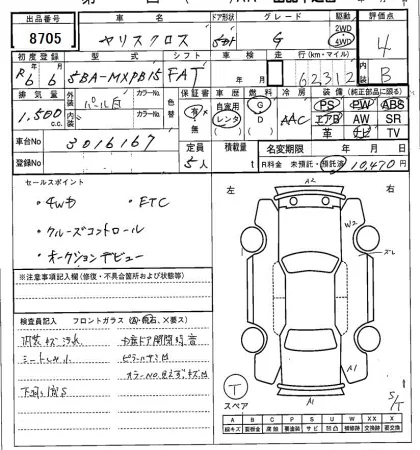 出品番号 車名 ドア形状 グレード 駆動 評価点
8705 ヤリスクロス 5D G 2WD 4WD 4
初度登録 型式 シフト 車検 走行(km・マイル) 内装
R6 6 5BA-MXPB15 FAT 年 月 62,312 B
排気量 外装 パール白 カラーNo. 色替 保証書 車歴 燃料 冷房 装備(純正部品に限る)
1,500 c.c. 内装 カラーNo. 有・無 自家用 レンタ G D AAC PS PW ABS
エアB AW SR
革 ナビ TV
車台No 3016167 定員 積載量 名変期限 年 月 日
登録No 5人 t R料金 未預託・預託済 10,470円
セールスポイント
・4WD ・ETC
・クルーズコントロール
・オークションデビュー
※注意事項記入欄(修復・不具合箇所および状態等)
検査員記入欄 フロントガラス(A・飛石、X要ス)
内装キズ汚れ
シートしみ小
下廻り傷S
左 右
A2
W2
ズレ
A1
A1
S/T
T
スペア
A B C P S U W X XX X
線キズ 要板金 腐食 要塗装 サビ 凹凸 補修跡 交換跡 要交換